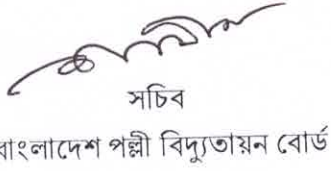 সচিব
বাংলাদেশ পল্লী বিদ্যুতায়ন বোর্ড